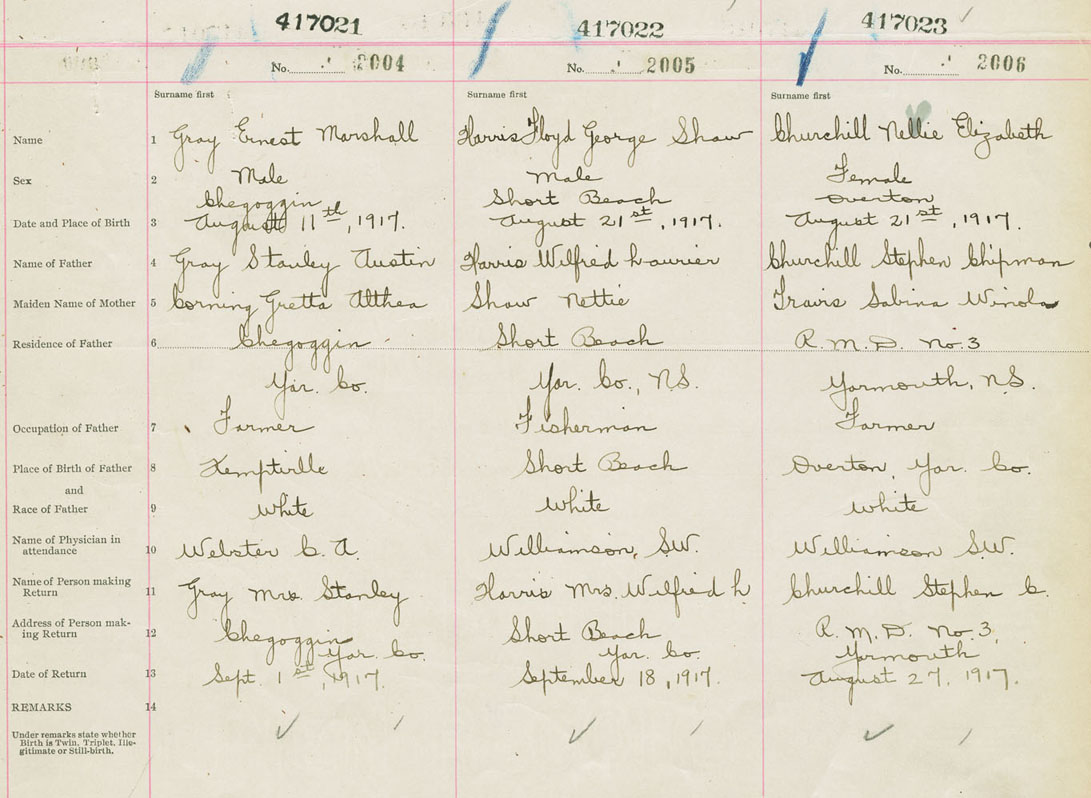 417021 417022 417023
No. 2004 No. 2005 No. 2006
Surname first Surname first Surname first
Name 1 Gray Ernest Marshall Harris Floyd George Shaw Churchill Nellie Elizabeth
Sex 2 Male Male Female
Chegoggin Short Beach Overton
Date and Place of Birth 3 August 11th, 1917. August 21st, 1917. August 21st, 1917.
Name of Father 4 Gray Stanley Austin Harris Wilfred Laurier Churchill Stephen Chipman
Maiden Name of Mother 5 Corning Gretta Althea Shaw Nettie Travis Sabina Winola
Residence of Father 6 Chegoggin Short Beach R. M. D. No. 3
Yar. Co. Yar. Co., N.S. Yarmouth, N.S.
Occupation of Father 7 Farmer Fisherman Farmer
Place of Birth of Father 8 Kemptville Short Beach Overton, Yar. Co.
and
Race of Father 9 White White White
Name of Physician in
attendance 10 Webster C. A. Williamson, S.W. Williamson S.W.
Name of Person making
Return 11 Gray Mrs. Stanley Harris Mrs. Wilfred L Churchill Stephen C.
Address of Person mak-
ing Return 12 Chegoggin Short Beach R. M. D. No. 3,
Yar. Co. Yar. Co. Yarmouth
Date of Return 13 Sept. 1st, 1917. September 18, 1917. August 27, 1917.
REMARKS 14
Under remarks state whether
Birth is Twin, Triplet, Ille-
gitimate or Still-birth.